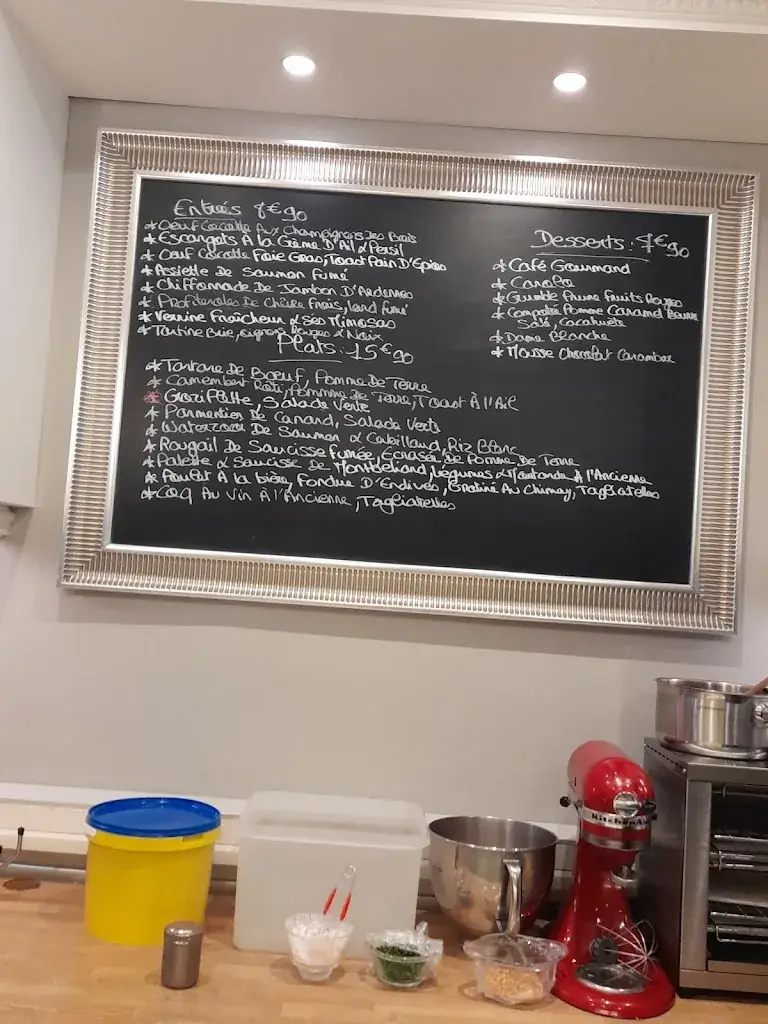 Entrées 7€90
* Oeuf Cocotte Aux Champignons Des Bois
* Escargots A la Crème D'Ail & Persil
* Oeuf Cocotte Foie Gras, Toast Pain D'Epices
* Assiette De Saumon Fumé
* Chiffonnade De Jambon D'Ardennes
* Profiteroles De Chèvre Frais, lard fumé
* Verrine Fraîcheur & Ses Mimosas
* Tartine Brie, oignons Rouges & Noix
Plats: 15€90
* Tartare De Bœuf, Pomme De Terre
* Camembert Roti, Pomme De Terre, Toast À l'Ail
* Salade Verte
* Parmentier De Canard, Salade Verte
* Waterzooi De Saumon & Cabillaud, Riz Blanc
* Rougail De Saucisse fumée, Écrasée De Pomme De Terre
* Palette & Saucisse De Montbeliard, Légumes & Moutarde A l'Ancienne
* Poulet A la bière, Fondue D'Endives, Gratiné Au Chimay, Tagliatelles
* Coq Au Vin À l'Ancienne, Tagliatelles
Desserts: 7€90
* Café Gourmand
* Fruits Rouges
* Compotée Pomme Caramel Beurre
Salé, Cacahuète
* Dame Blanche
* Mousse Chocolat Carambar
KitchenAid